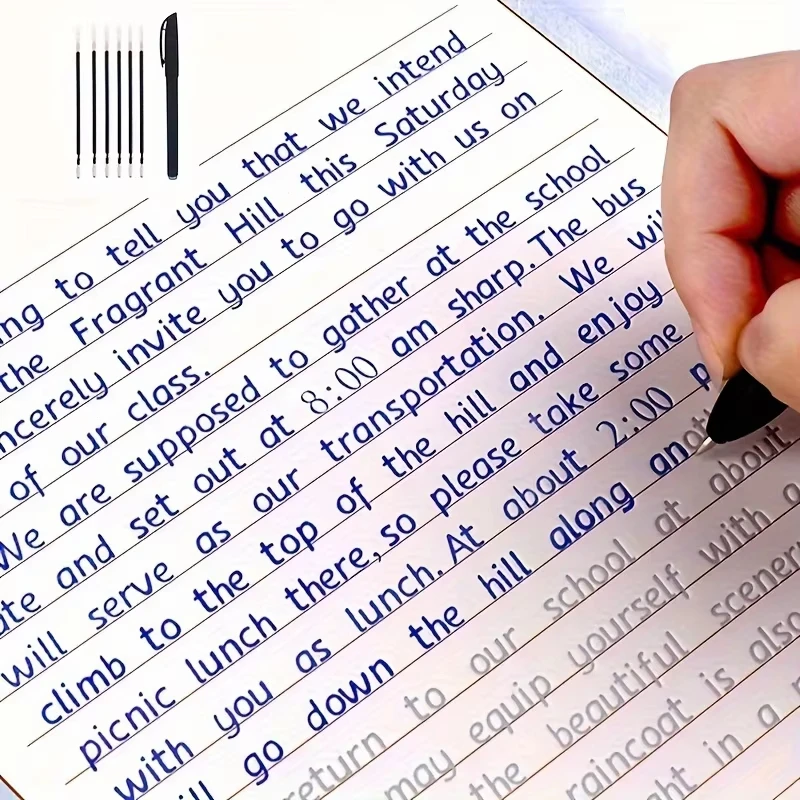 ng to tell you that we intend
the Fragrant Hill this Saturday
ncerely invite you to go with us on
of our class.
We are supposed to gather at the school
ate and set out at 8:00 am sharp. The bus
will serve as our transportation. We wil
climb to the top of the hill and enjoy
picnic lunch there, so please take some
with you as lunch. At about 2:00 p
ill go down the hill along anoth
return to our school at about
may equip yourself with a
the beautiful scener
raincoat is also
ght in a